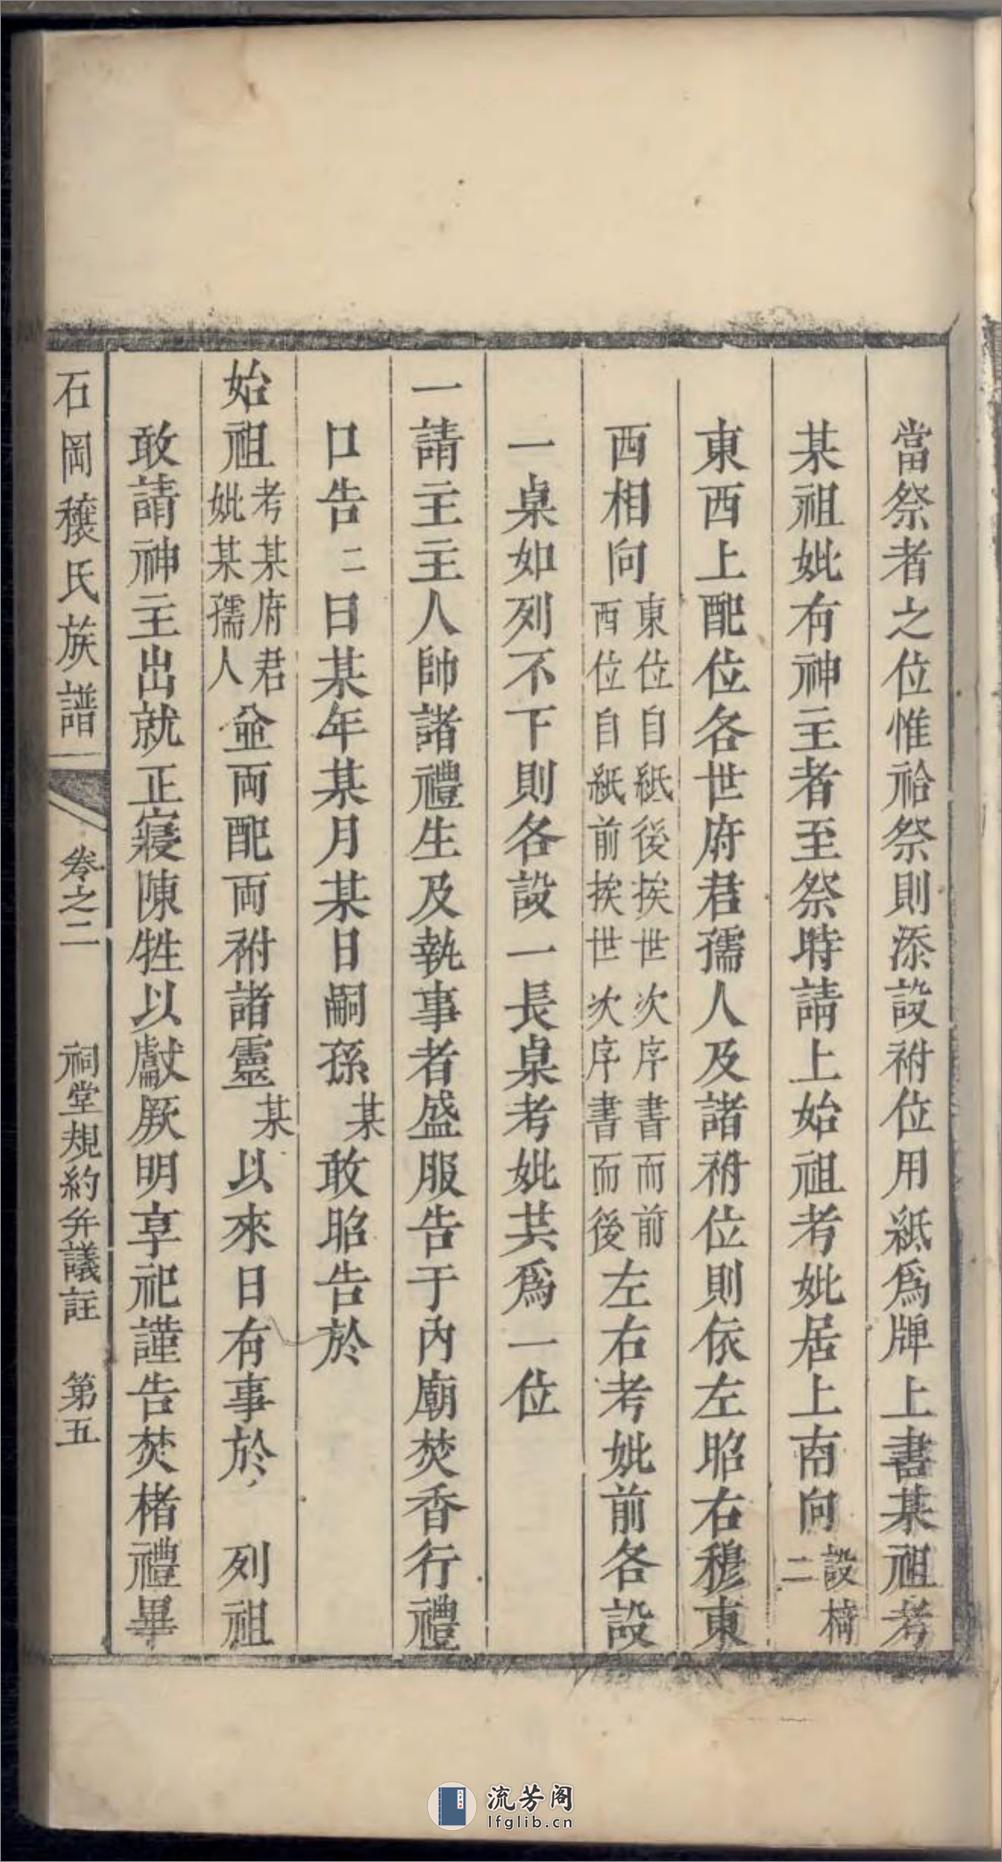 當祭者之位惟祫祭則添設祔位用紙爲牌上書某祖考
某祖妣有神主者至祭時請上始祖考妣居上南向設椅二
東西上配位各世府君孺人及諸祔位則依左昭右穆東
西相向東位自紙後挨世次序書而前西位自紙前挨世次序書而後左右考妣前各設
一桌如列不下則各設一長桌考妣共爲一位
一請主主人帥諸禮生及執事者盛服告于內廟焚香行禮
口告二曰某年某月某日嗣孫某敢昭告於
始祖考某府君妣某孺人並兩配兩祔諸靈某以來日有事於列祖
敢請神主出就正寢陳牲以獻厥明享祀謹告焚楮禮畢
石岡穰氏族譜 卷之二 祠堂規約并議註 第五
流芳阁
lfglib.cn